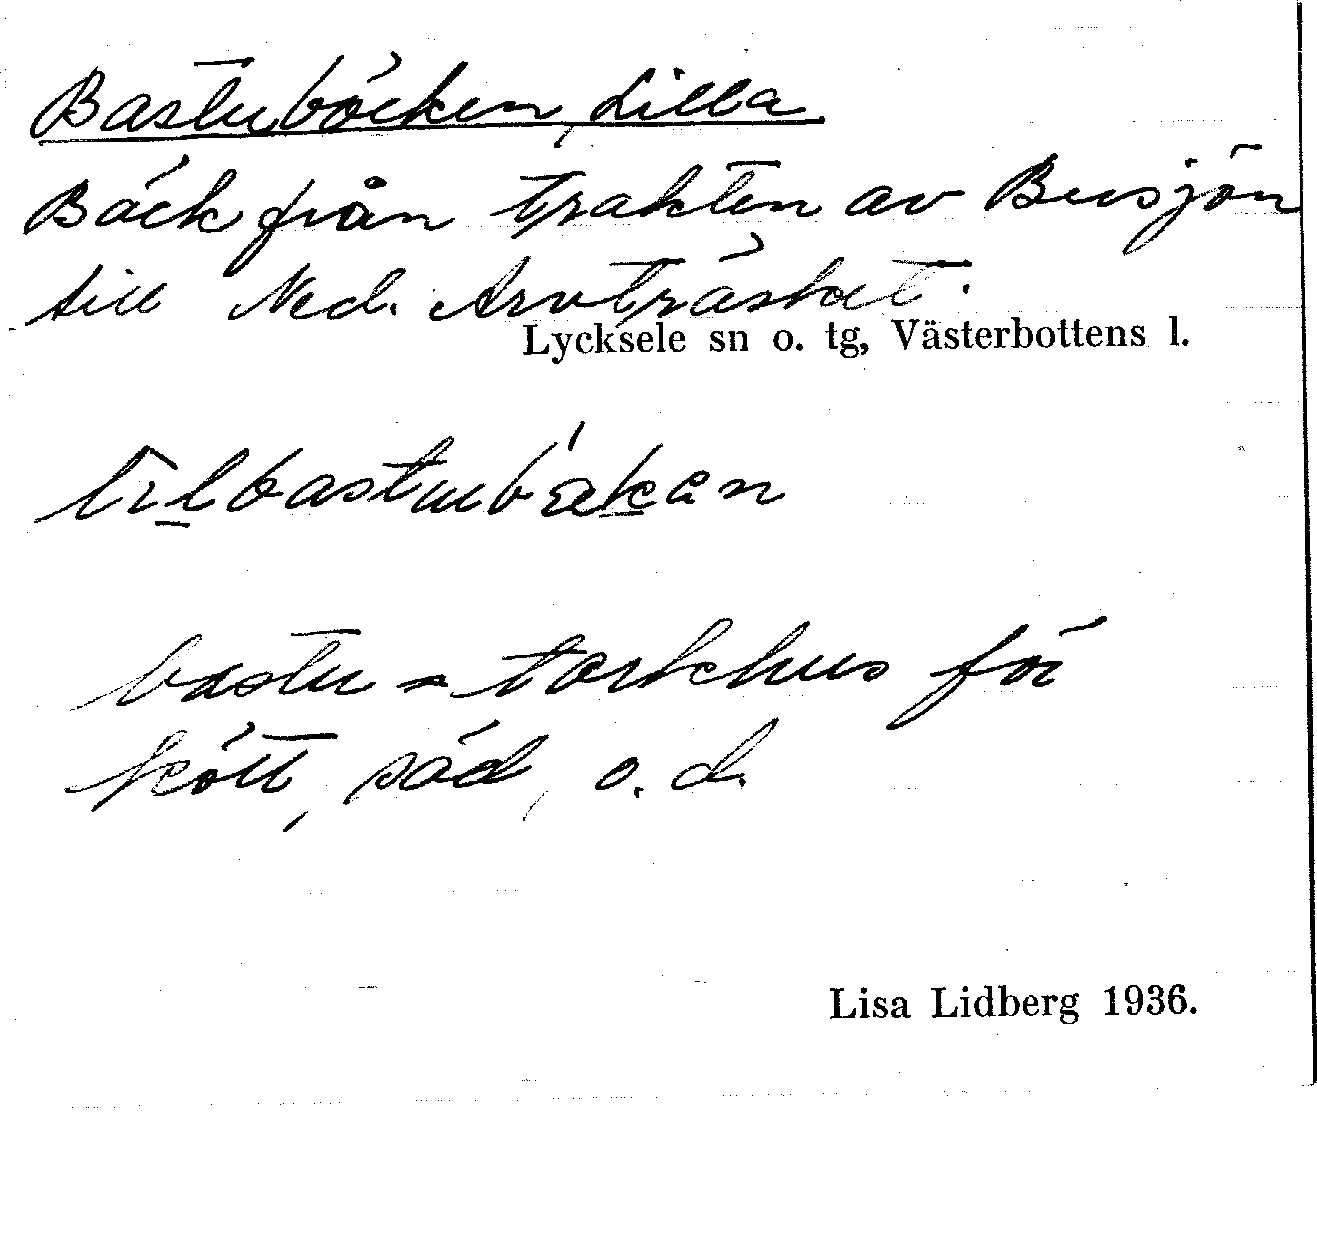 Bastubäcken, Lilla
Bäck från trakten av Busjön
till Ned. Arvträsket.
Lycksele sn o. tg, Västerbottens l.
bastu = torkhus för
kött, säd, o.d.
Lisa Lidberg 1936.